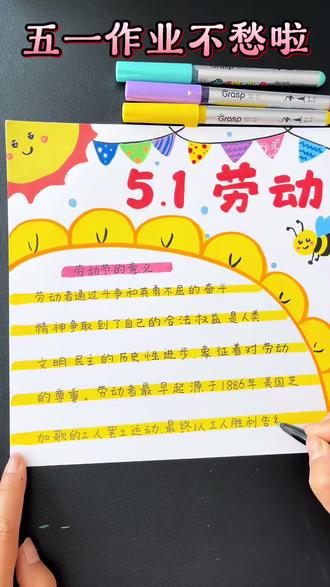 五一作业不愁啦
Grasp
Grasp
Grasp
5.1 劳动
劳动节的意义
劳动者通过斗争和英勇不屈的奋斗
精神争取到了自己的合法权益,是人类
文明民主的历史性进步,象征着对劳动
的尊重。劳动者最早起源于1886年美国芝
加歌的工人罢工运动,最终以工人胜利告